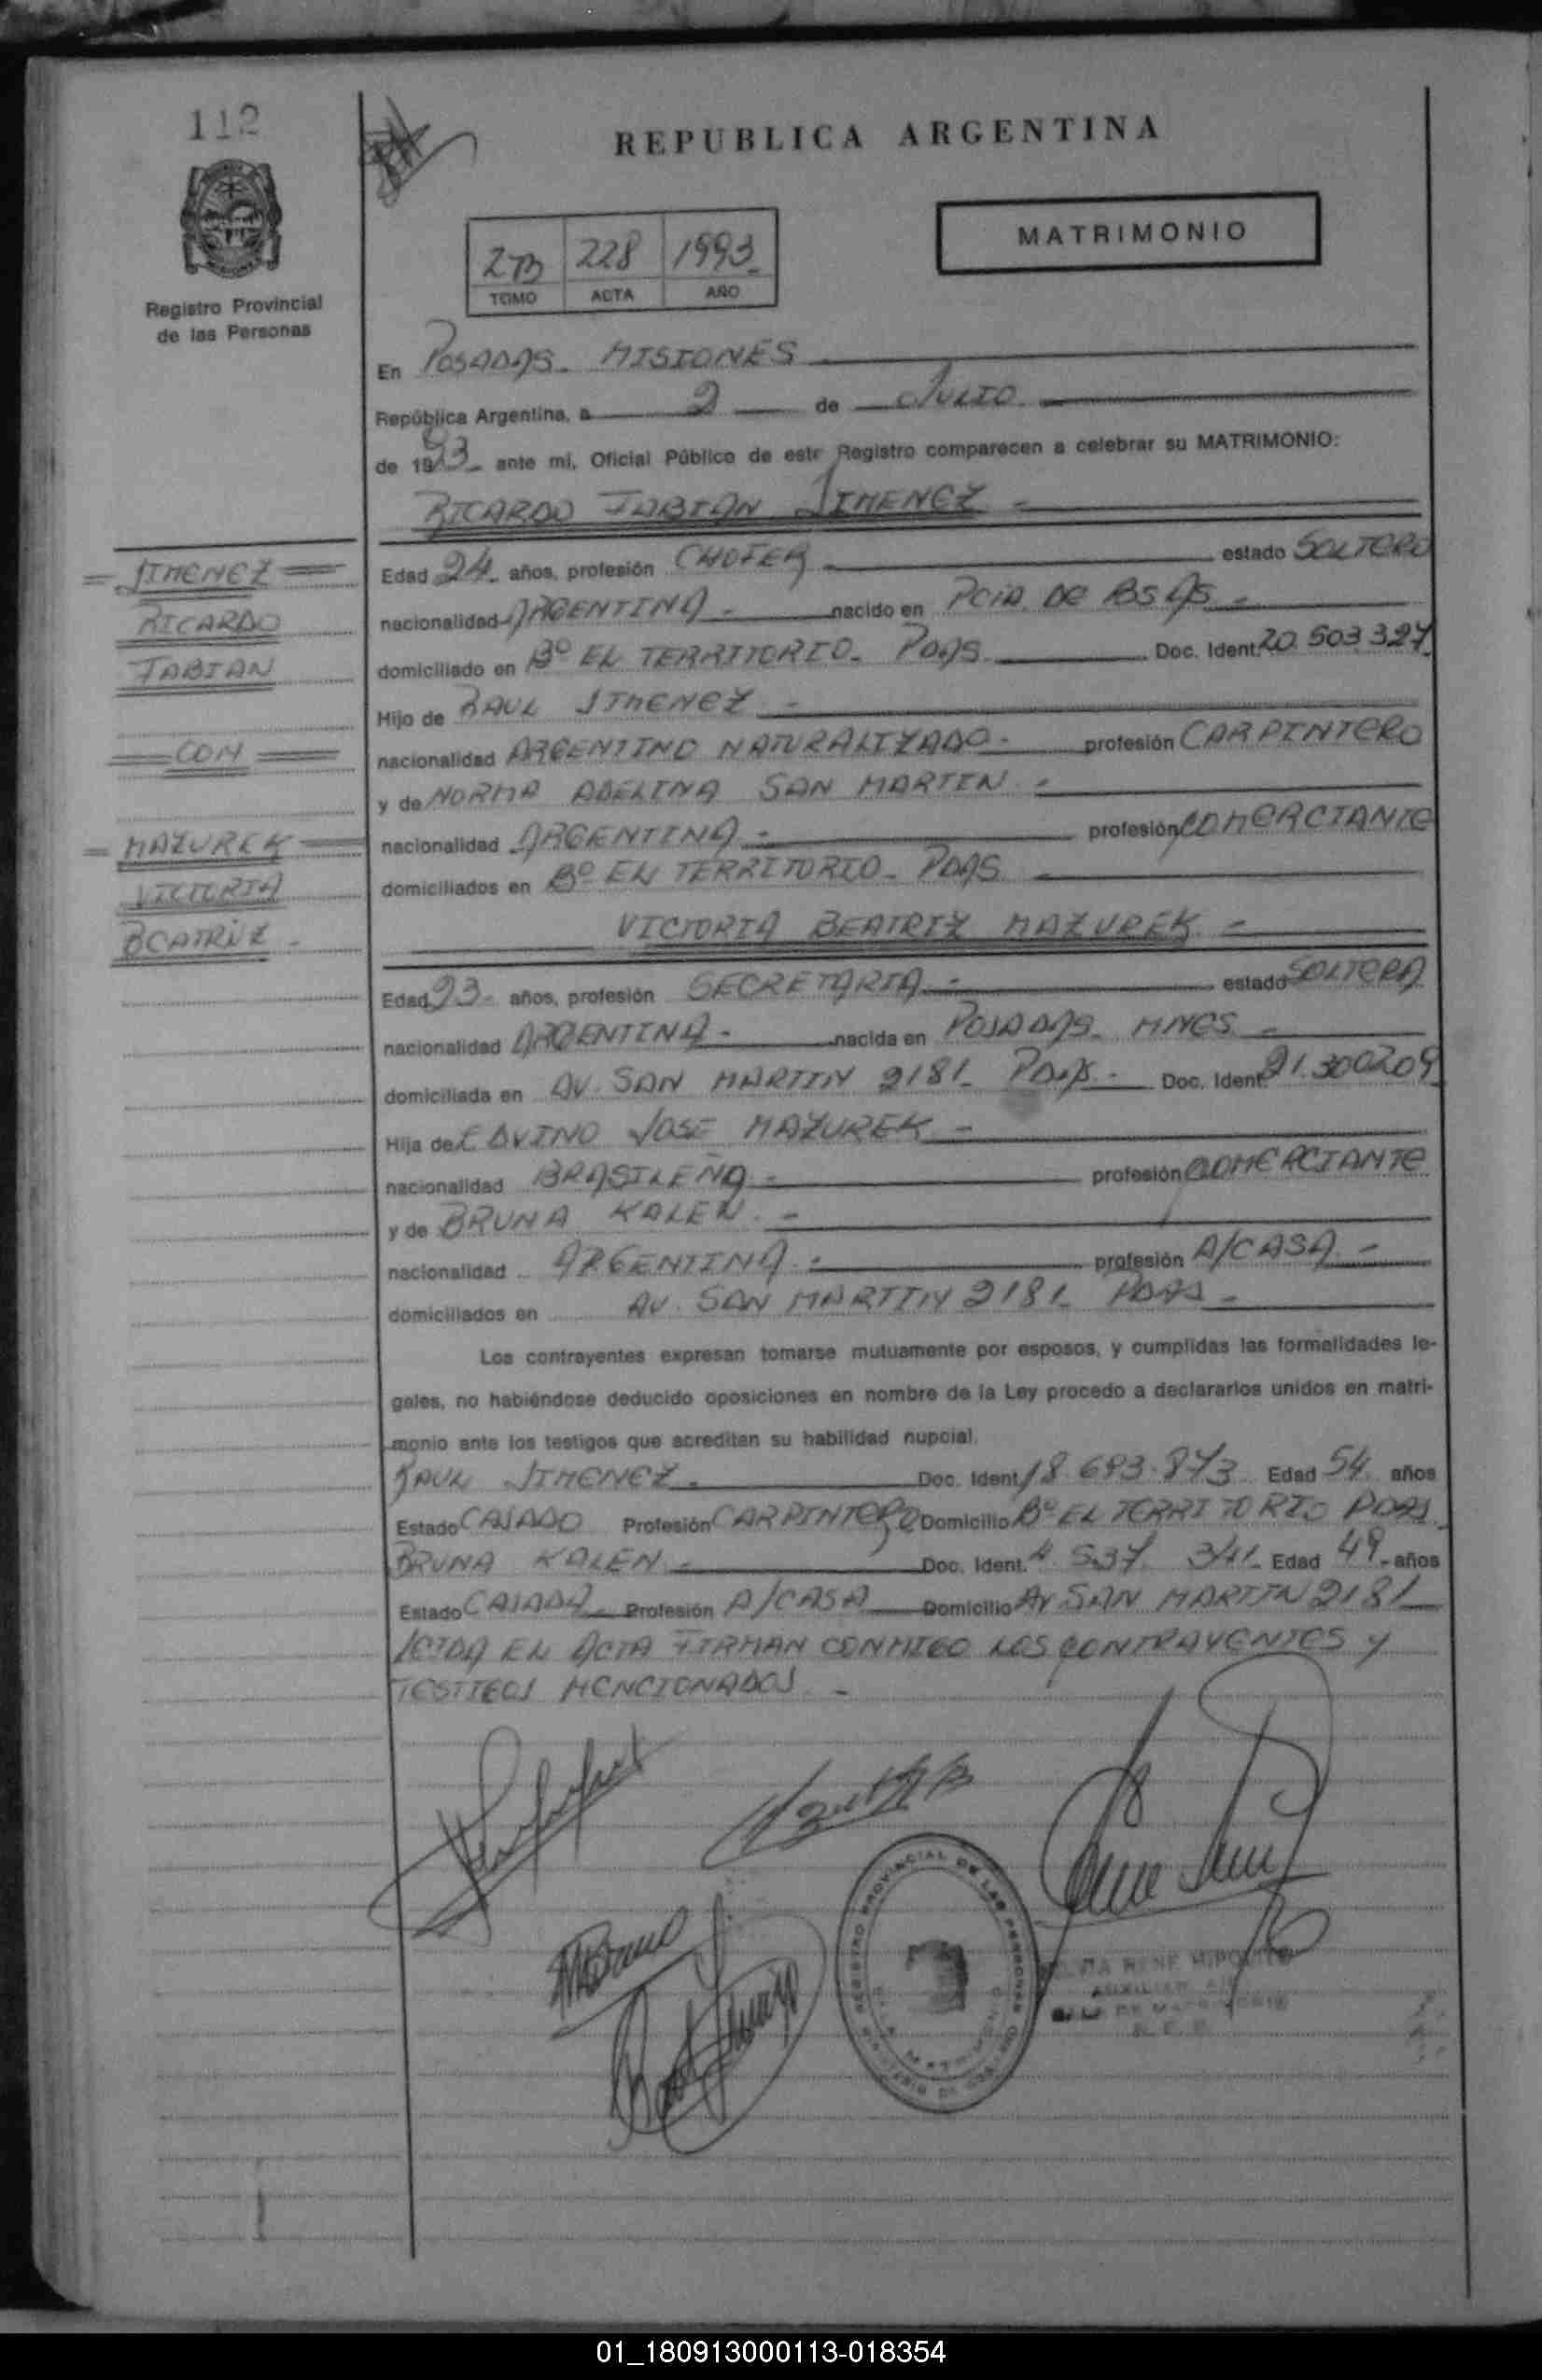 112
REPUBLICA ARGENTINA
MATRIMONIO
2B 228 1993
TOMO ACTA AÑO
Registro Provincial
de las Personas
En POSADAS - MISIONES
República Argentina, a 2 de JULIO
de 1993 ante mi, Oficial Público de este Registro comparecen a celebrar su MATRIMONIO:
RICARDO FABIAN JIMENEZ -
= JIMENEZ =
RICARDO
FABIAN
= CON =
= MAZUREK =
VICTORIA
BEATRIZ -
Edad 24 años, profesión CHOFER estado SOLTERO
nacionalidad ARGENTINA - nacido en PCIA DE BS AS -
domiciliado en Bº EL TERRITORIO - PDAS Doc. Ident. 20.503.327
Hijo de RAUL JIMENEZ -
nacionalidad ARGENTINO NATURALIZADO - profesión CARPINTERO
y de NORMA ADELINA SAN MARTIN -
nacionalidad ARGENTINA - profesión COMERCIANTE
domiciliados en Bº EL TERRITORIO - PDAS
VICTORIA BEATRIZ MAZUREK -
Edad 23 - años, profesión SECRETARIA - estado SOLTERA
nacionalidad ARGENTINA - nacida en POSADAS - MNES -
domiciliada en AV. SAN MARTIN 2181 - PDAS - Doc. Ident. 21.300209
Hija de EDVINO JOSE MAZUREK -
nacionalidad BRASILEÑA - profesión COMERCIANTE
y de BRUNA KALEN -
nacionalidad ARGENTINA - profesión A/CASA -
domiciliados en AV. SAN MARTIN 2181 - PDAS -
Los contrayentes expresan tomarse mutuamente por esposos, y cumplidas las formalidades le-
gales, no habiéndose deducido oposiciones en nombre de la Ley procedo a declararlos unidos en matri-
monio ante los testigos que acreditan su habilidad nupcial.
RAUL JIMENEZ - Doc. Ident. 18.693.873 Edad 54 años
Estado CASADO Profesión CARPINTERO Domicilio Bº EL TERRITORIO PDAS
BRUNA KALEN - Doc. Ident. 4.537.341 - Edad 49 - años
Estado CASADA - Profesión A/CASA Domicilio AV SAN MARTIN 2181
LEIDA EL ACTA FIRMAN CONMIGO LOS CONTRAYENTES Y
TESTIGOS MENCIONADOS -
REGISTRO PROVINCIAL DE LAS PERSONAS
RENE HIPOLITO
AUXILIAR
01_180913000113-018354